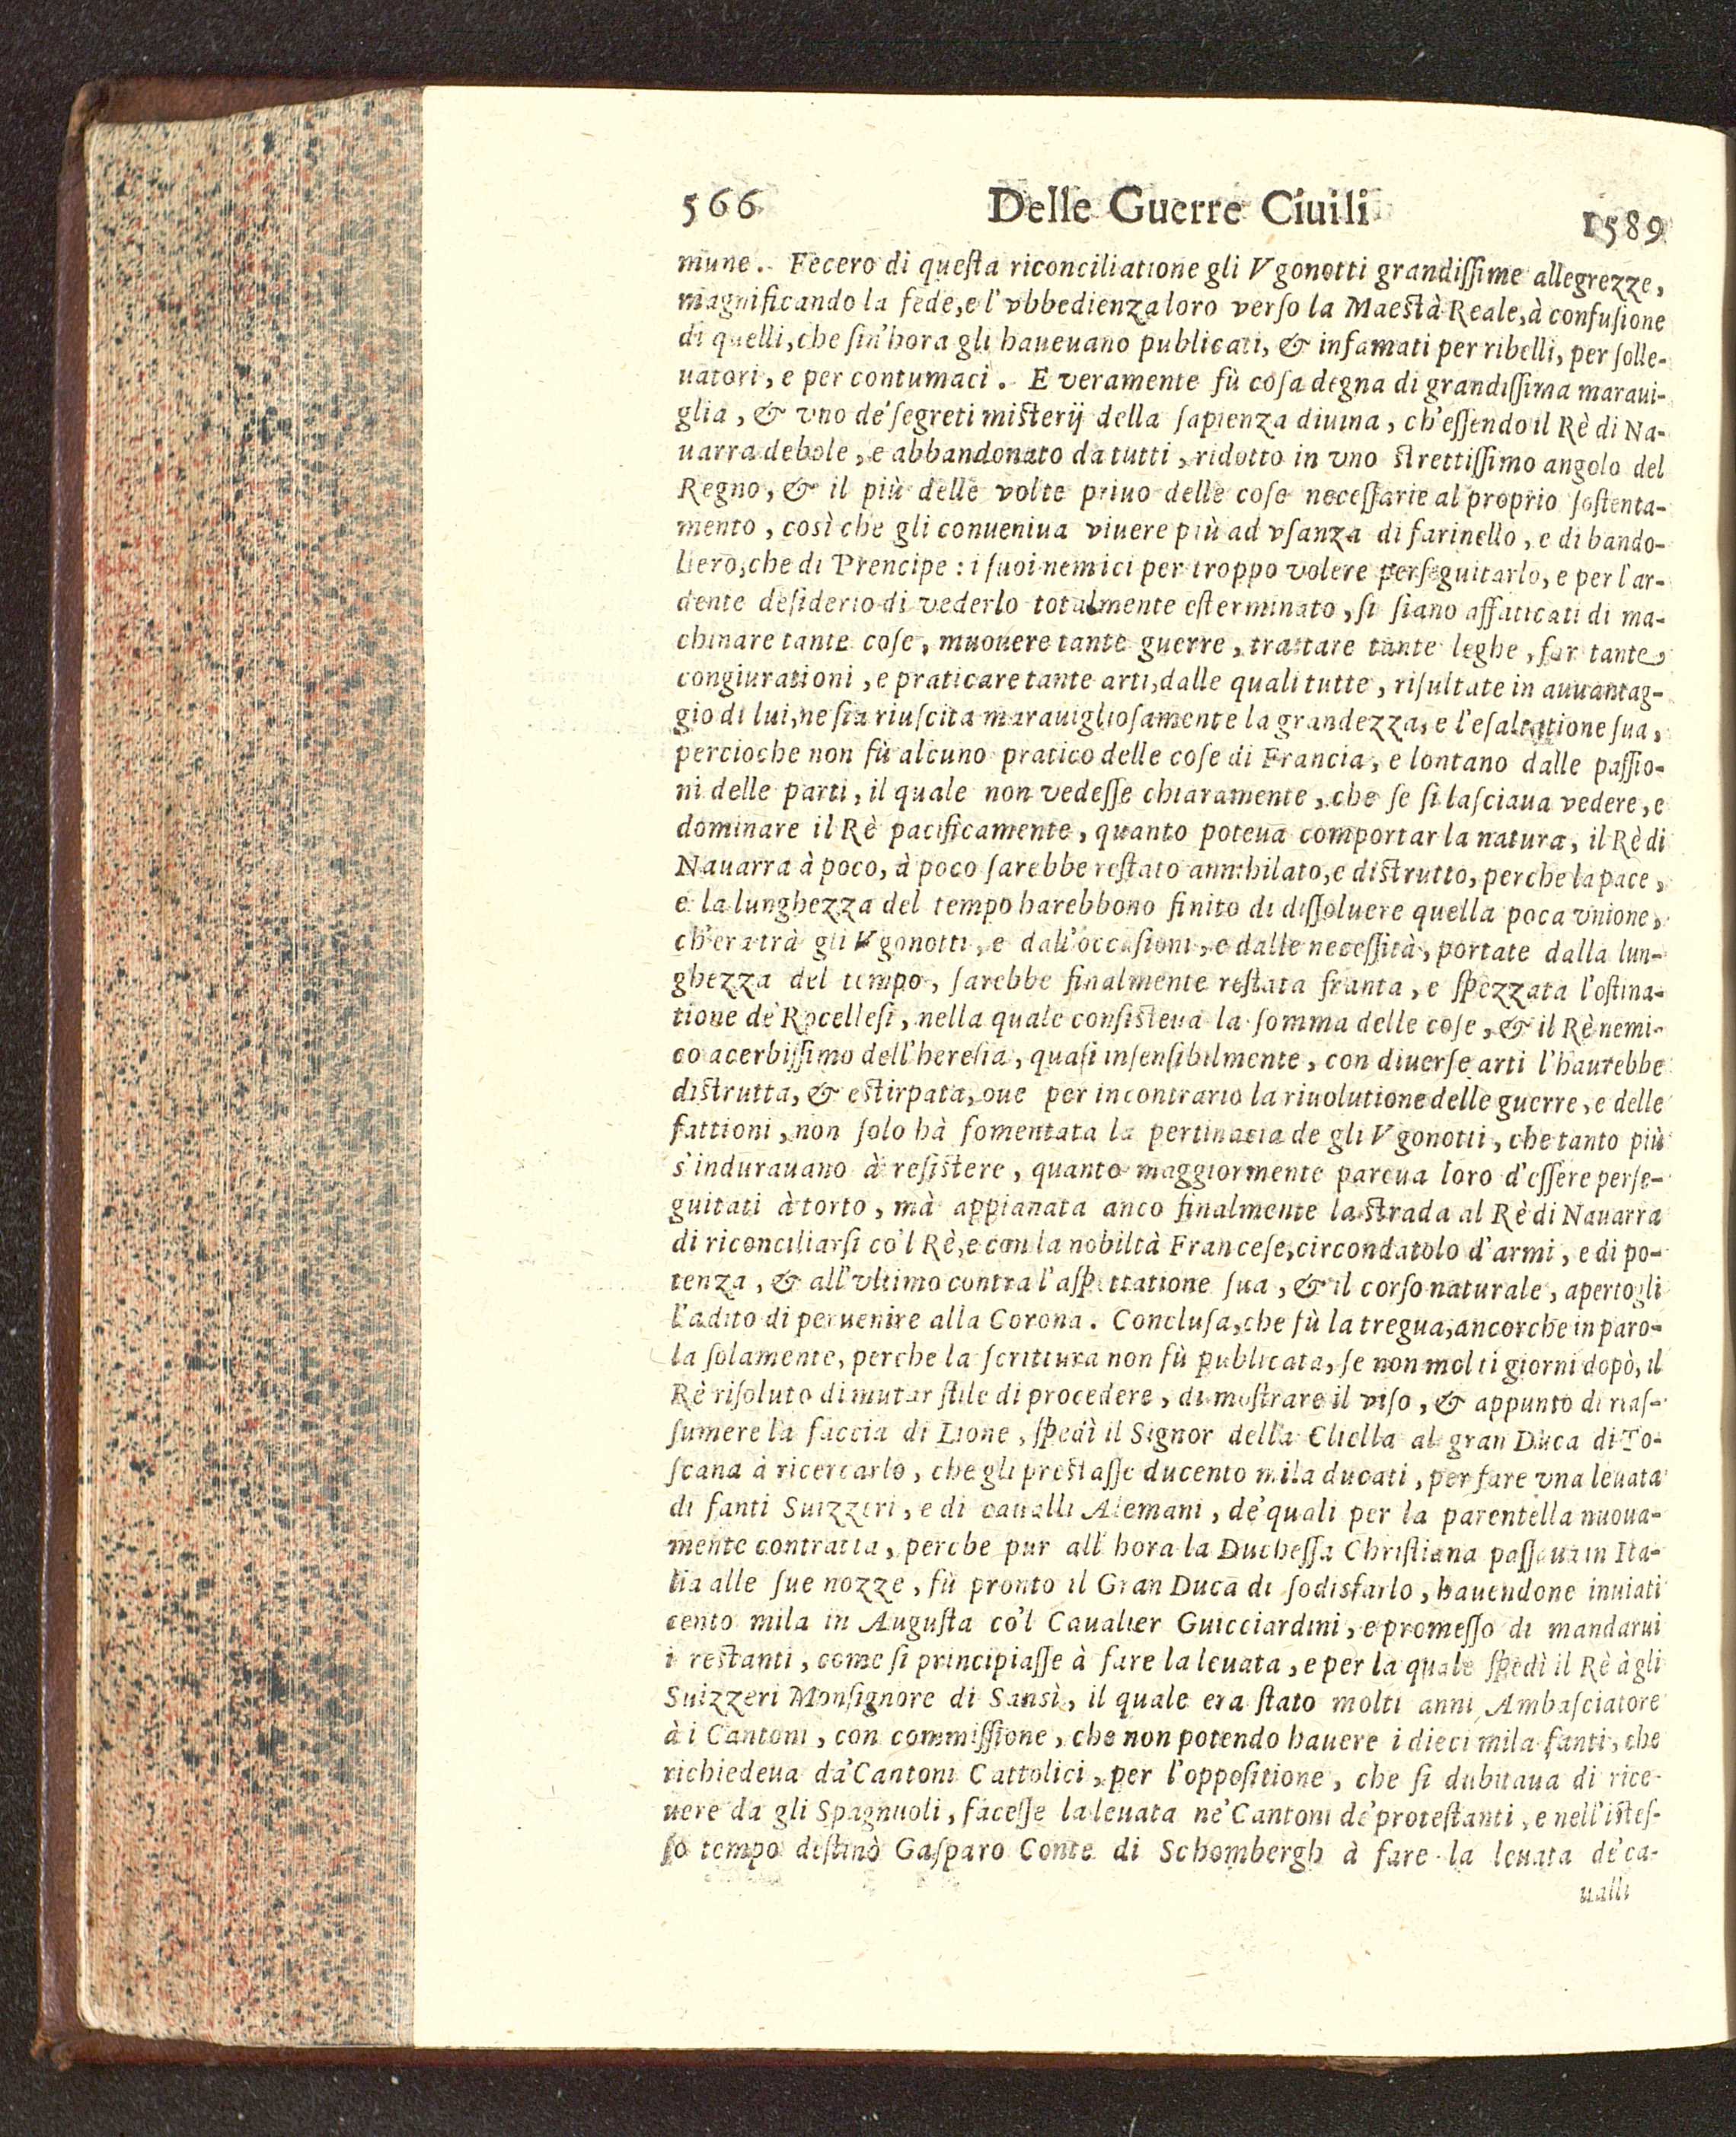 566 Delle Guerre Ciuili 1589
mune. Fecero di queſta riconciliatione gli Vgonotti grandiſſime allegrezze,
magnificando la fede, e l'vbbedienza loro verſo la Maeſtà Reale, à confuſione
di quelli, che ſin'hora gli haueuano publicati, & infamati per ribelli, per ſolle-
uatori, e per contumaci. E veramente fù coſa degna di grandiſſima maraui-
glia, & vno de' ſegreti miſterij della ſapienza diuina, ch'eſſendo il Rè di Na-
uarra debole, e abbandonato da tutti, ridotto in vno ſtrettiſſimo angolo del
Regno, & il più delle volte priuo delle coſe neceſſarie al proprio ſoſtenta-
mento, così che gli conueniua viuere più ad vſanza di farinello, e di bando-
liero, che di Prencipe: i ſuoi nemici per troppo volere perſeguitarlo, e per l'ar-
dente deſiderio di vederlo totalmente eſterminato, ſi ſiano affaticati di ma-
chinare tante coſe, muouere tante guerre, trattare tante leghe, far tante
congiurationi, e praticare tante arti, dalle quali tutte, riſultate in auuantag-
gio di lui, ne ſia riuſcita marauiglioſamente la grandezza, e l'eſaltatione ſua,
percioche non fù alcuno pratico delle coſe di Francia, e lontano dalle paſſio-
ni delle parti, il quale non vedeſſe chiaramente, che ſe ſi laſciaua vedere, e
dominare il Rè pacificamente, quanto poteua comportar la natura, il Rè di
Nauarra à poco, à poco ſarebbe reſtato annihilato, e diſtrutto, perche la pace,
e la lunghezza del tempo harebbono finito di diſſoluere quella poca vnione,
ch'era trà gli Vgonotti, e dall'occaſioni, e dalle neceſſità, portate dalla lun-
ghezza del tempo, ſarebbe finalmente reſtata franta, e ſpezzata l'oſtina-
tione de' Rocelleſi, nella quale conſiſteua la ſomma delle coſe, & il Rè nemi-
co acerbiſſimo dell'hereſia, quaſi inſenſibilmente, con diuerſe arti l'haurebbe
diſtrutta, & eſtirpata, oue per incontrario la riuolutione delle guerre, e delle
fattioni, non ſolo hà fomentata la pertinacia de gli Vgonotti, che tanto più
s'indurauano à reſiſtere, quanto maggiormente pareua loro d'eſſere perſe-
guitati à torto, mà appianata anco finalmente la ſtrada al Rè di Nauarra
di riconciliarſi co'l Rè, e con la nobiltà Franceſe, circondatolo d'armi, e di po-
tenza, & all'vltimo contra l'aſpettatione ſua, & il corſo naturale, apertogli
l'adito di peruenire alla Corona. Concluſa, che fù la tregua, ancorche in paro-
la ſolamente, perche la ſcrittura non fù publicata, ſe non molti giorni dopò, il
Rè riſoluto di mutar ſtile di procedere, di moſtrare il viſo, & appunto di riaſ-
ſumere la faccia di Lione, ſpedì il Signor della Cliella al gran Duca di To-
ſcana à ricercarlo, che gli preſtaſſe ducento mila ducati, per fare vna leuata
di fanti Suizzeri, e di caualli Alemani, de' quali per la parentella nuoua-
mente contratta, perche pur all'hora la Ducheſſa Chriſtiana paſſaua in Ita-
lia alle ſue nozze, fù pronto il Gran Duca di ſodisfarlo, hauendone inuiati
cento mila in Auguſta co'l Caualier Guicciardini, e promeſſo di mandarui
i reſtanti, come ſi principiaſſe à fare la leuata, e per la quale ſpedì il Rè à gli
Suizzeri Monſignore di Sansì, il quale era ſtato molti anni Ambaſciatore
à i Cantoni, con commiſſione, che non potendo hauere i dieci mila fanti, che
richiedeua da' Cantoni Cattolici, per l'oppoſitione, che ſi dubitaua di rice-
uere da gli Spagnuoli, faceſſe la leuata ne' Cantoni de' proteſtanti, e nell'iſteſ-
ſo tempo deſtinò Gaſparo Conte di Schombergh à fare la leuata de' ca-
ualli